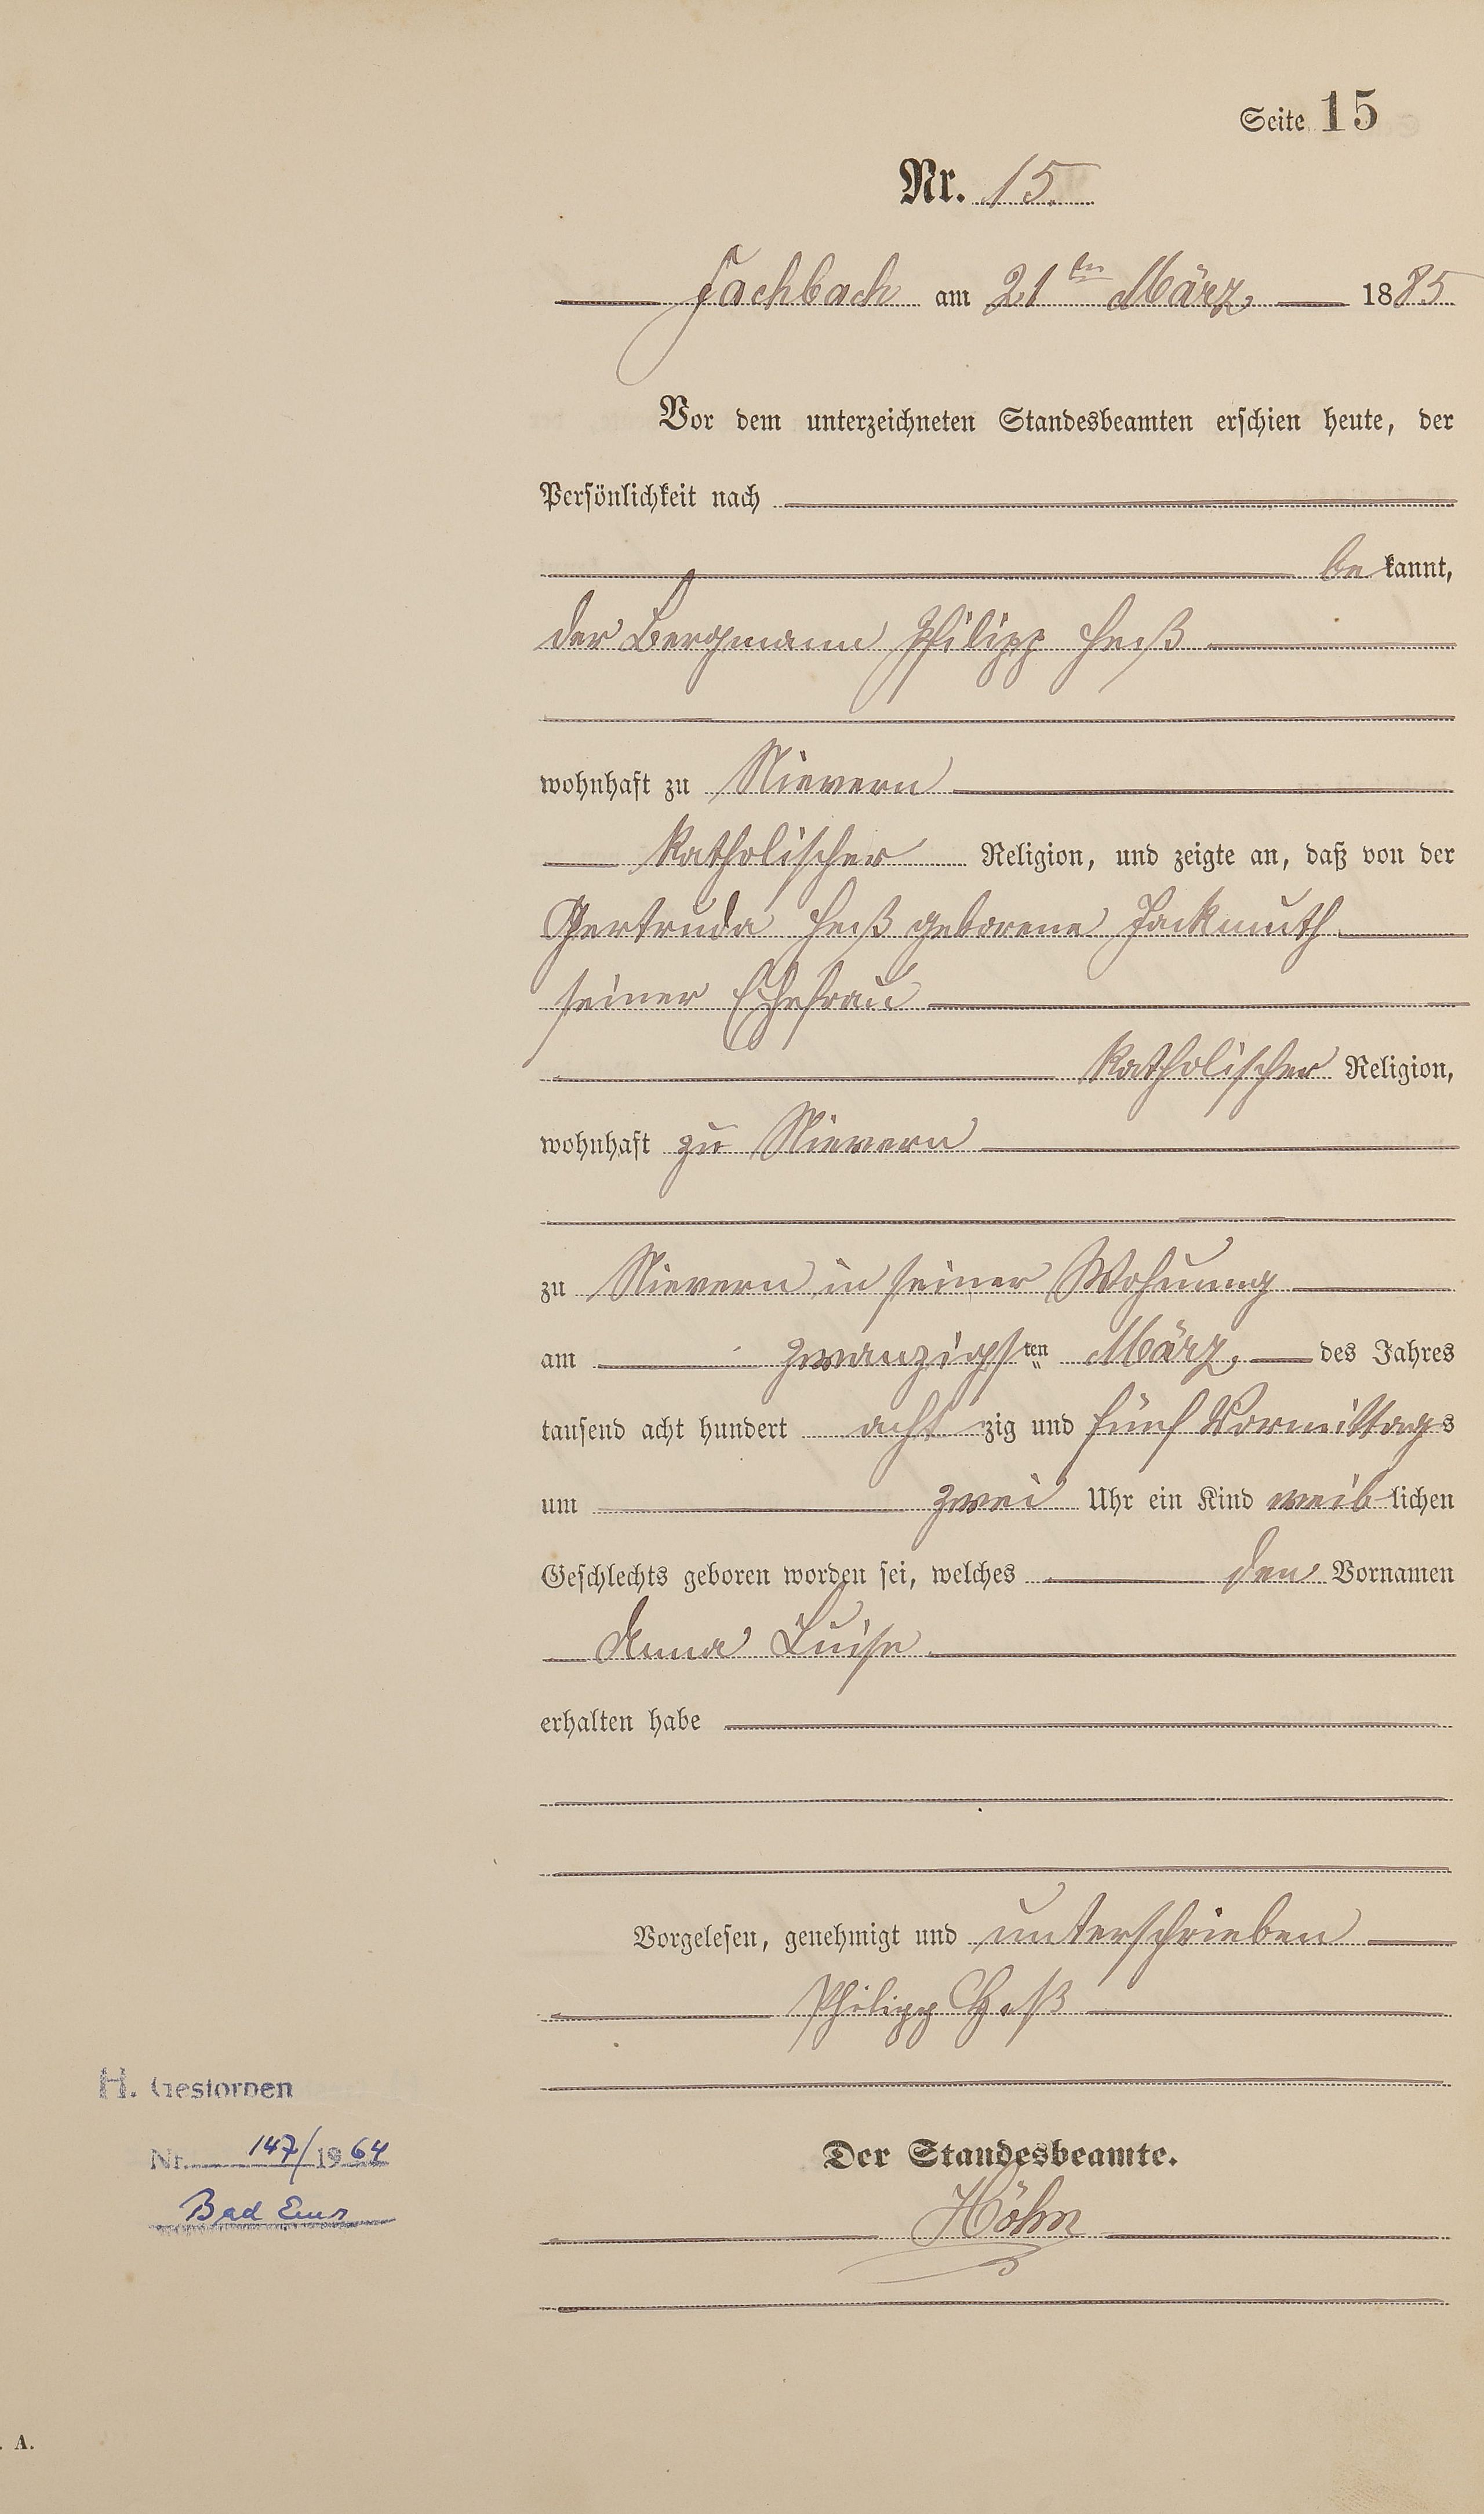 Seite 15
Nr. 15.
Fachbach am 21ten März 1885
Vor dem unterzeichneten Standesbeamten erschien heute, der
Persönlichkeit nach
be kannt,
der Bergmann Philipp Heß
wohnhaft zu Nievern
katholischer Religion, und zeigte an, daß von der
Gertruda Heß geborene Jackmuth
seiner Ehefrau
katholischer Religion,
wohnhaft zu Nievern
zu Nievern in seiner Wohnung
am zwanzigsten März des Jahres
tausend acht hundert acht zig und fünf Vormittags
um zwei Uhr ein Kind weiblichen
Geschlechts geboren worden sei, welches den Vornamen
Anna Luise
erhalten habe
Vorgelesen, genehmigt und unterschrieben
Philipp Heß
H. Gestorben
Nr. 147/1964
Bad Ems
Der Standesbeamte.
Höhn
. A.